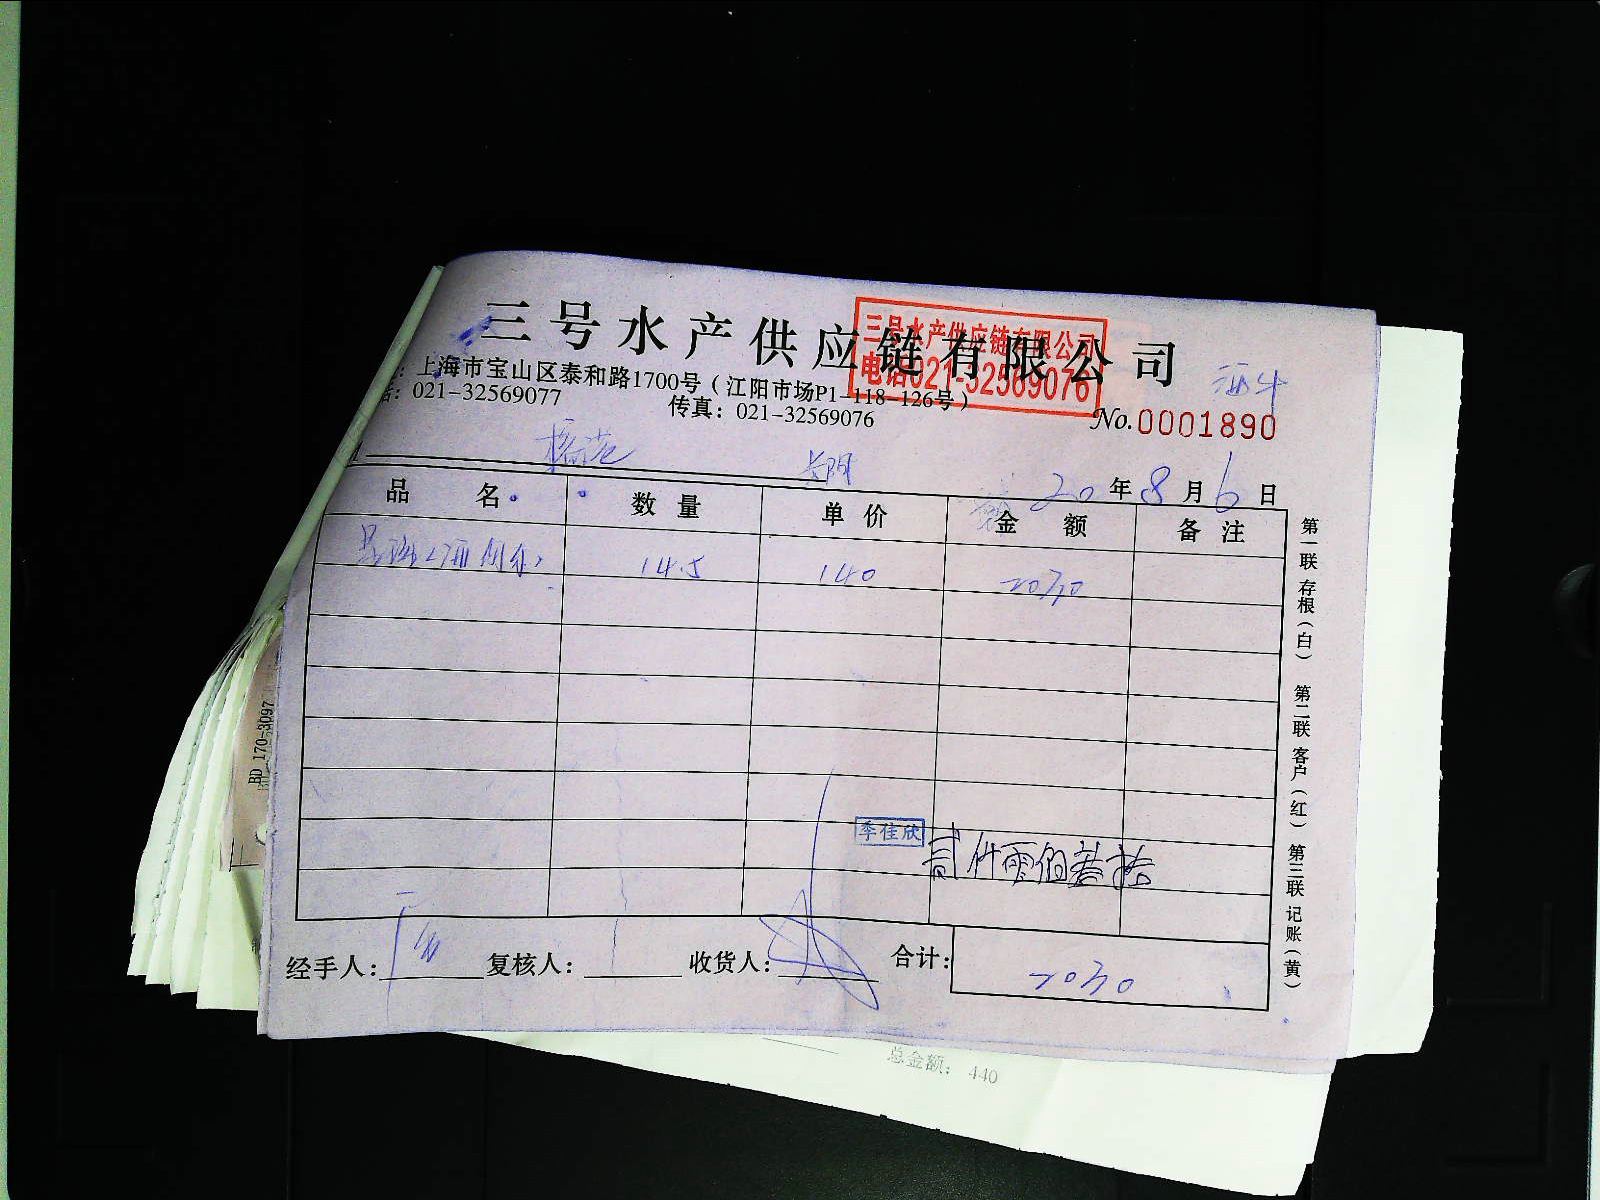 三号水产供应链有限公司
三号水产供应链有限公司
电话021-32569076
：上海市宝山区泰和路1700号（江阳市场P1-118-126号）
话：021-32569077 传真：021-32569076
No.0001890
20年8月6日
品名 数量 单价 金额 备注
14.5 140 2030
季佳欣
贰仟零佰叁拾
经手人： 复核人： 收货人： 合计： 2030
第一联 存根（白） 第二联 客户（红） 第三联 记账（黄）
BD 170-3097
总金额： 440